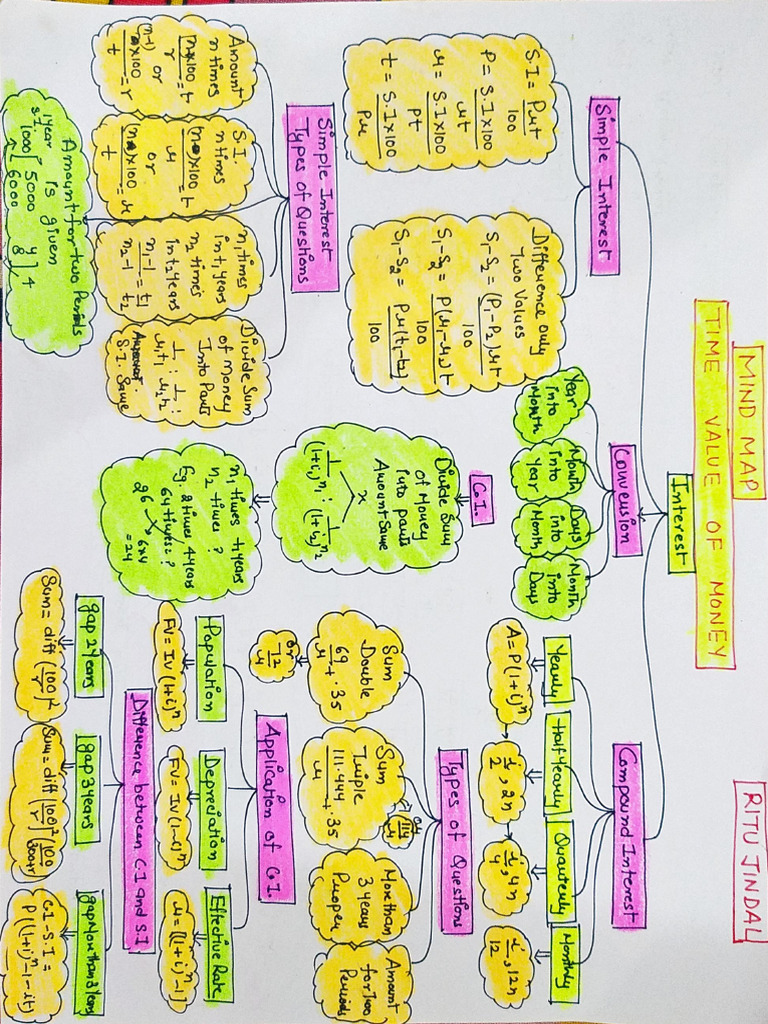 MIND MAP
TIME VALUE OF MONEY
RITU JINDAL
Interest
Simple Interest
S.I = Prt
100
P = S.I X 100
rt
r = S.I X 100
Pt
t = S.I X 100
Pr
Difference only
Two Values
S1-S2 = (P1-P2)rt
100
S1-S2 = P(r1-r2)t
100
S1-S2 = Pr(t1-t2)
100
Simple Interest
Types of Questions
Amount
n times
(n-1)x100 = t
r
or
(n-1)x100 = r
t
S.I.
n times
(n)x100 = t
r
or
(n)x100 = r
t
n1 times
in t1 years
n2 times
in t2 years
n1-1 = t1
n2-1 = t2
Divide Sum
of Money
Into Parts
1 : 1 :
r1t1 r2t2
S.I. Same
Amount for two Periods
is given
1 year
S.I.
1000
5000 4
6000 8
4
Conversion
Year
into
Month
Month
into
Year
Days
into
Month
Month
into
Days
C.I.
Divide Sum
of Money
into parts
Amount Same
x
1 : 1
(1+i)n1 (1+i)n2
n1 times t1 years
n2 times ?
Eg. 2 times 4 years
64 times ?
2^6
6x4
=24
Compound Interest
Yearly
A=P(1+i)^n
Half Yearly
i/2, 2n
Quarterly
i/4, 4n
Monthly
i/12, 12n
Types of Questions
Sum
Double
69 + .35
r
or
72
r
Sum
Triple
111.444 + .35
r
or
More than
3 years
Proper
Amount
for Two
Periods
Application of C.I.
Population
FV = IV (1+i)^n
Depreciation
FV = IV(1-i)^n
Effective Rate
r = [(1+i)^n-1]
Difference between C.I and S.I
gap 2 years
Sum = diff (100/r)^2
gap 3 years
Sum = diff (100/r)^2 (100/300+r)
gap More than 3 Years
C.I-S.I =
P((1+i)^n-1-it)